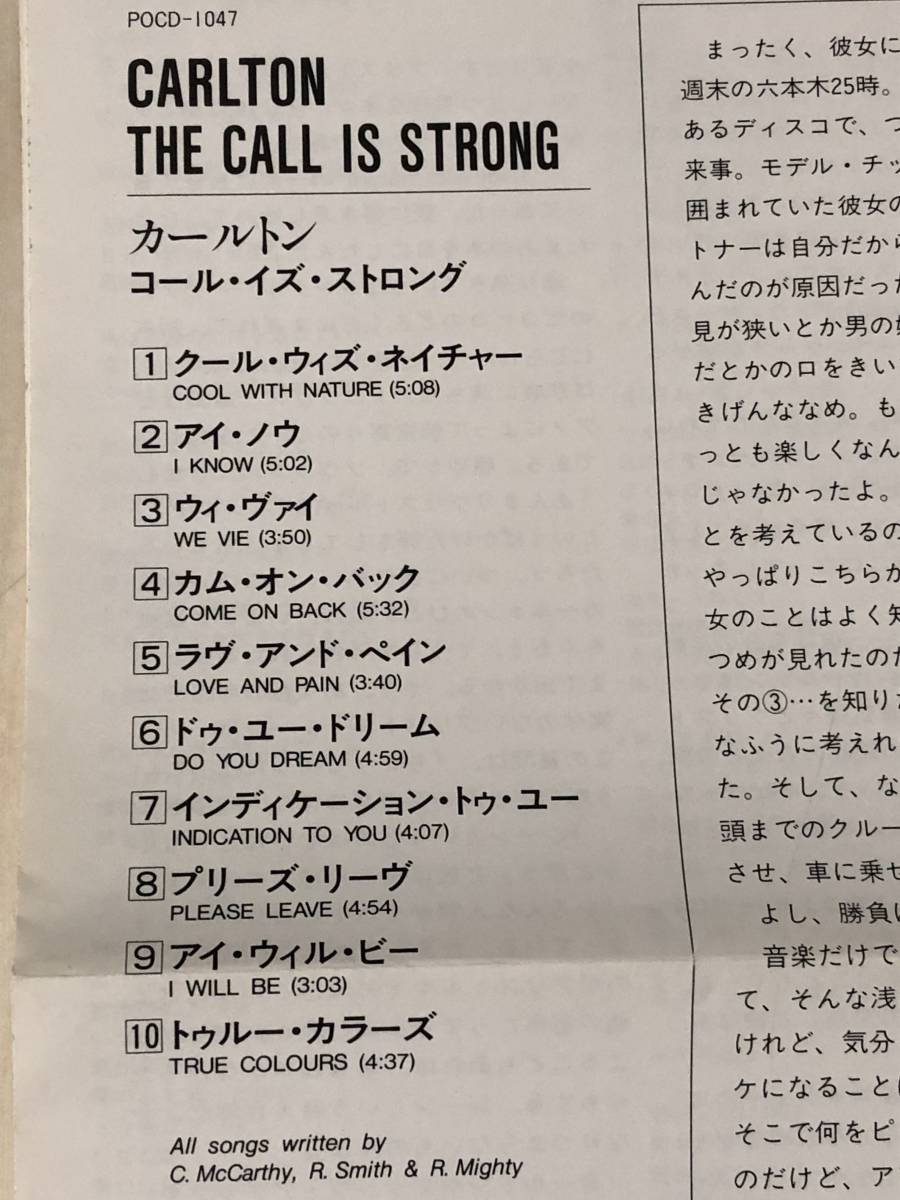 POCD-1047
CARLTON
THE CALL IS STRONG
カールトン
コール・イズ・ストロング
1 クール・ウィズ・ネイチャー
COOL WITH NATURE (5:08)
2 アイ・ノウ
I KNOW (5:02)
3 ウィ・ヴァイ
WE VIE (3:50)
4 カム・オン・バック
COME ON BACK (5:32)
5 ラヴ・アンド・ペイン
LOVE AND PAIN (3:40)
6 ドゥ・ユー・ドリーム
DO YOU DREAM (4:59)
7 インディケーション・トゥ・ユー
INDICATION TO YOU (4:07)
8 プリーズ・リーヴ
PLEASE LEAVE (4:54)
9 アイ・ウィル・ビー
I WILL BE (3:03)
10 トゥルー・カラーズ
TRUE COLOURS (4:37)
All songs written by
C. McCarthy, R. Smith & R. Mighty
まったく、彼女に
週末の六本木25時。
あるディスコで、つ
来事。モデル・チッ
囲まれていた彼女の
トナーは自分だから
んだのが原因だった
見が狭いとか男の
だとかの口をきい
きげんななめ。も
っとも楽しくなん
じゃなかったよ。
とを考えているの
やっぱりこちらか
女のことはよく知
つめが見れたのだ
その③…を知りた
なふうに考えれ
た。そして、な
頭までのクルー
させ、車に乗せ
よし、勝負は
音楽だけで
て、そんな浅
けれど、気分
ケになることは
そこで何をピ
のだけど、ア